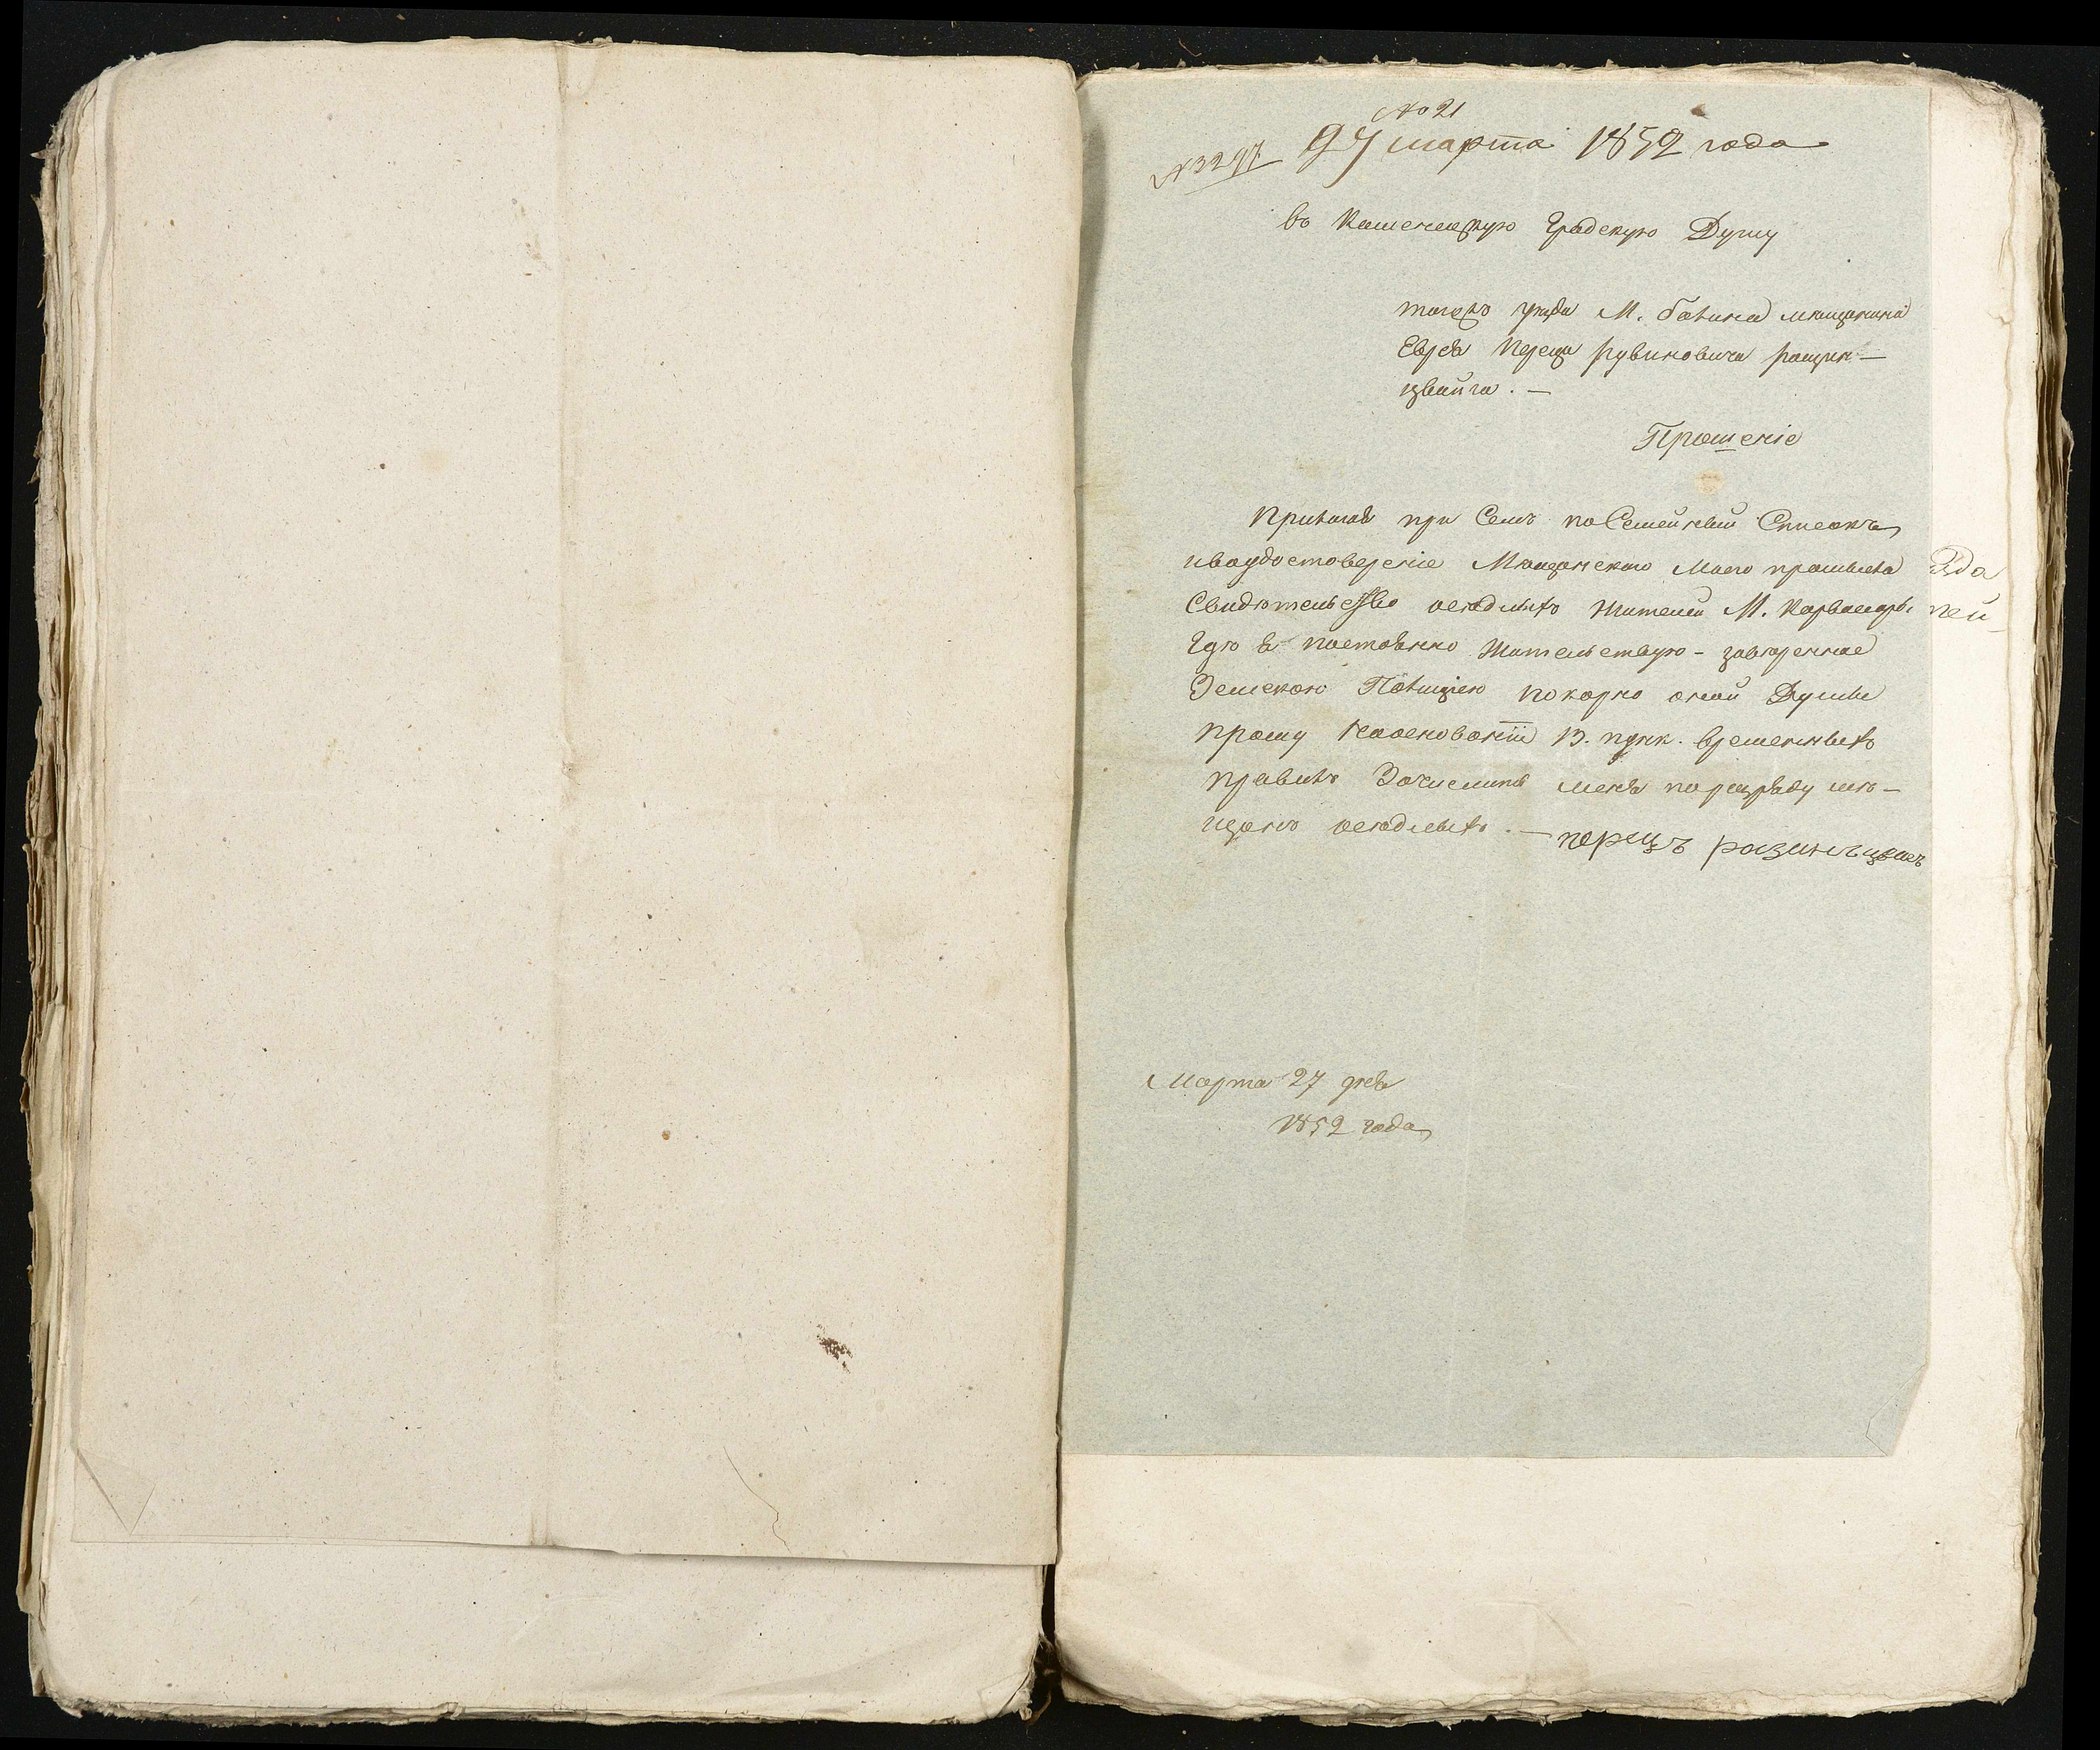 № 21
№ 3297 27 марта 1852 года
въ Каменецкую Градскую Думу
тогожъ уезда М. Балина мѣщанина
Еврея Переца Рувиновича разин-
цвайга. —
Прошеніе
Прилагая при Семъ посемейный Списокъ
ивоудостоверение Мѣщанскаго Моего промысла
Свидѣтельство оседлыхъ Жителей М. Карвасары
Гдѣ я постоянно Жительствую - завѣренное
Земскою Полицiею покорно оной Думы
прошу наоснованiи 13. пунк. временныхъ
правилъ Зачислить меня поразряду мѣ-
щанъ оседлыхъ. — перецъ разинъцвагъ
Зда
пей-
Марта 27 дня
1852 года